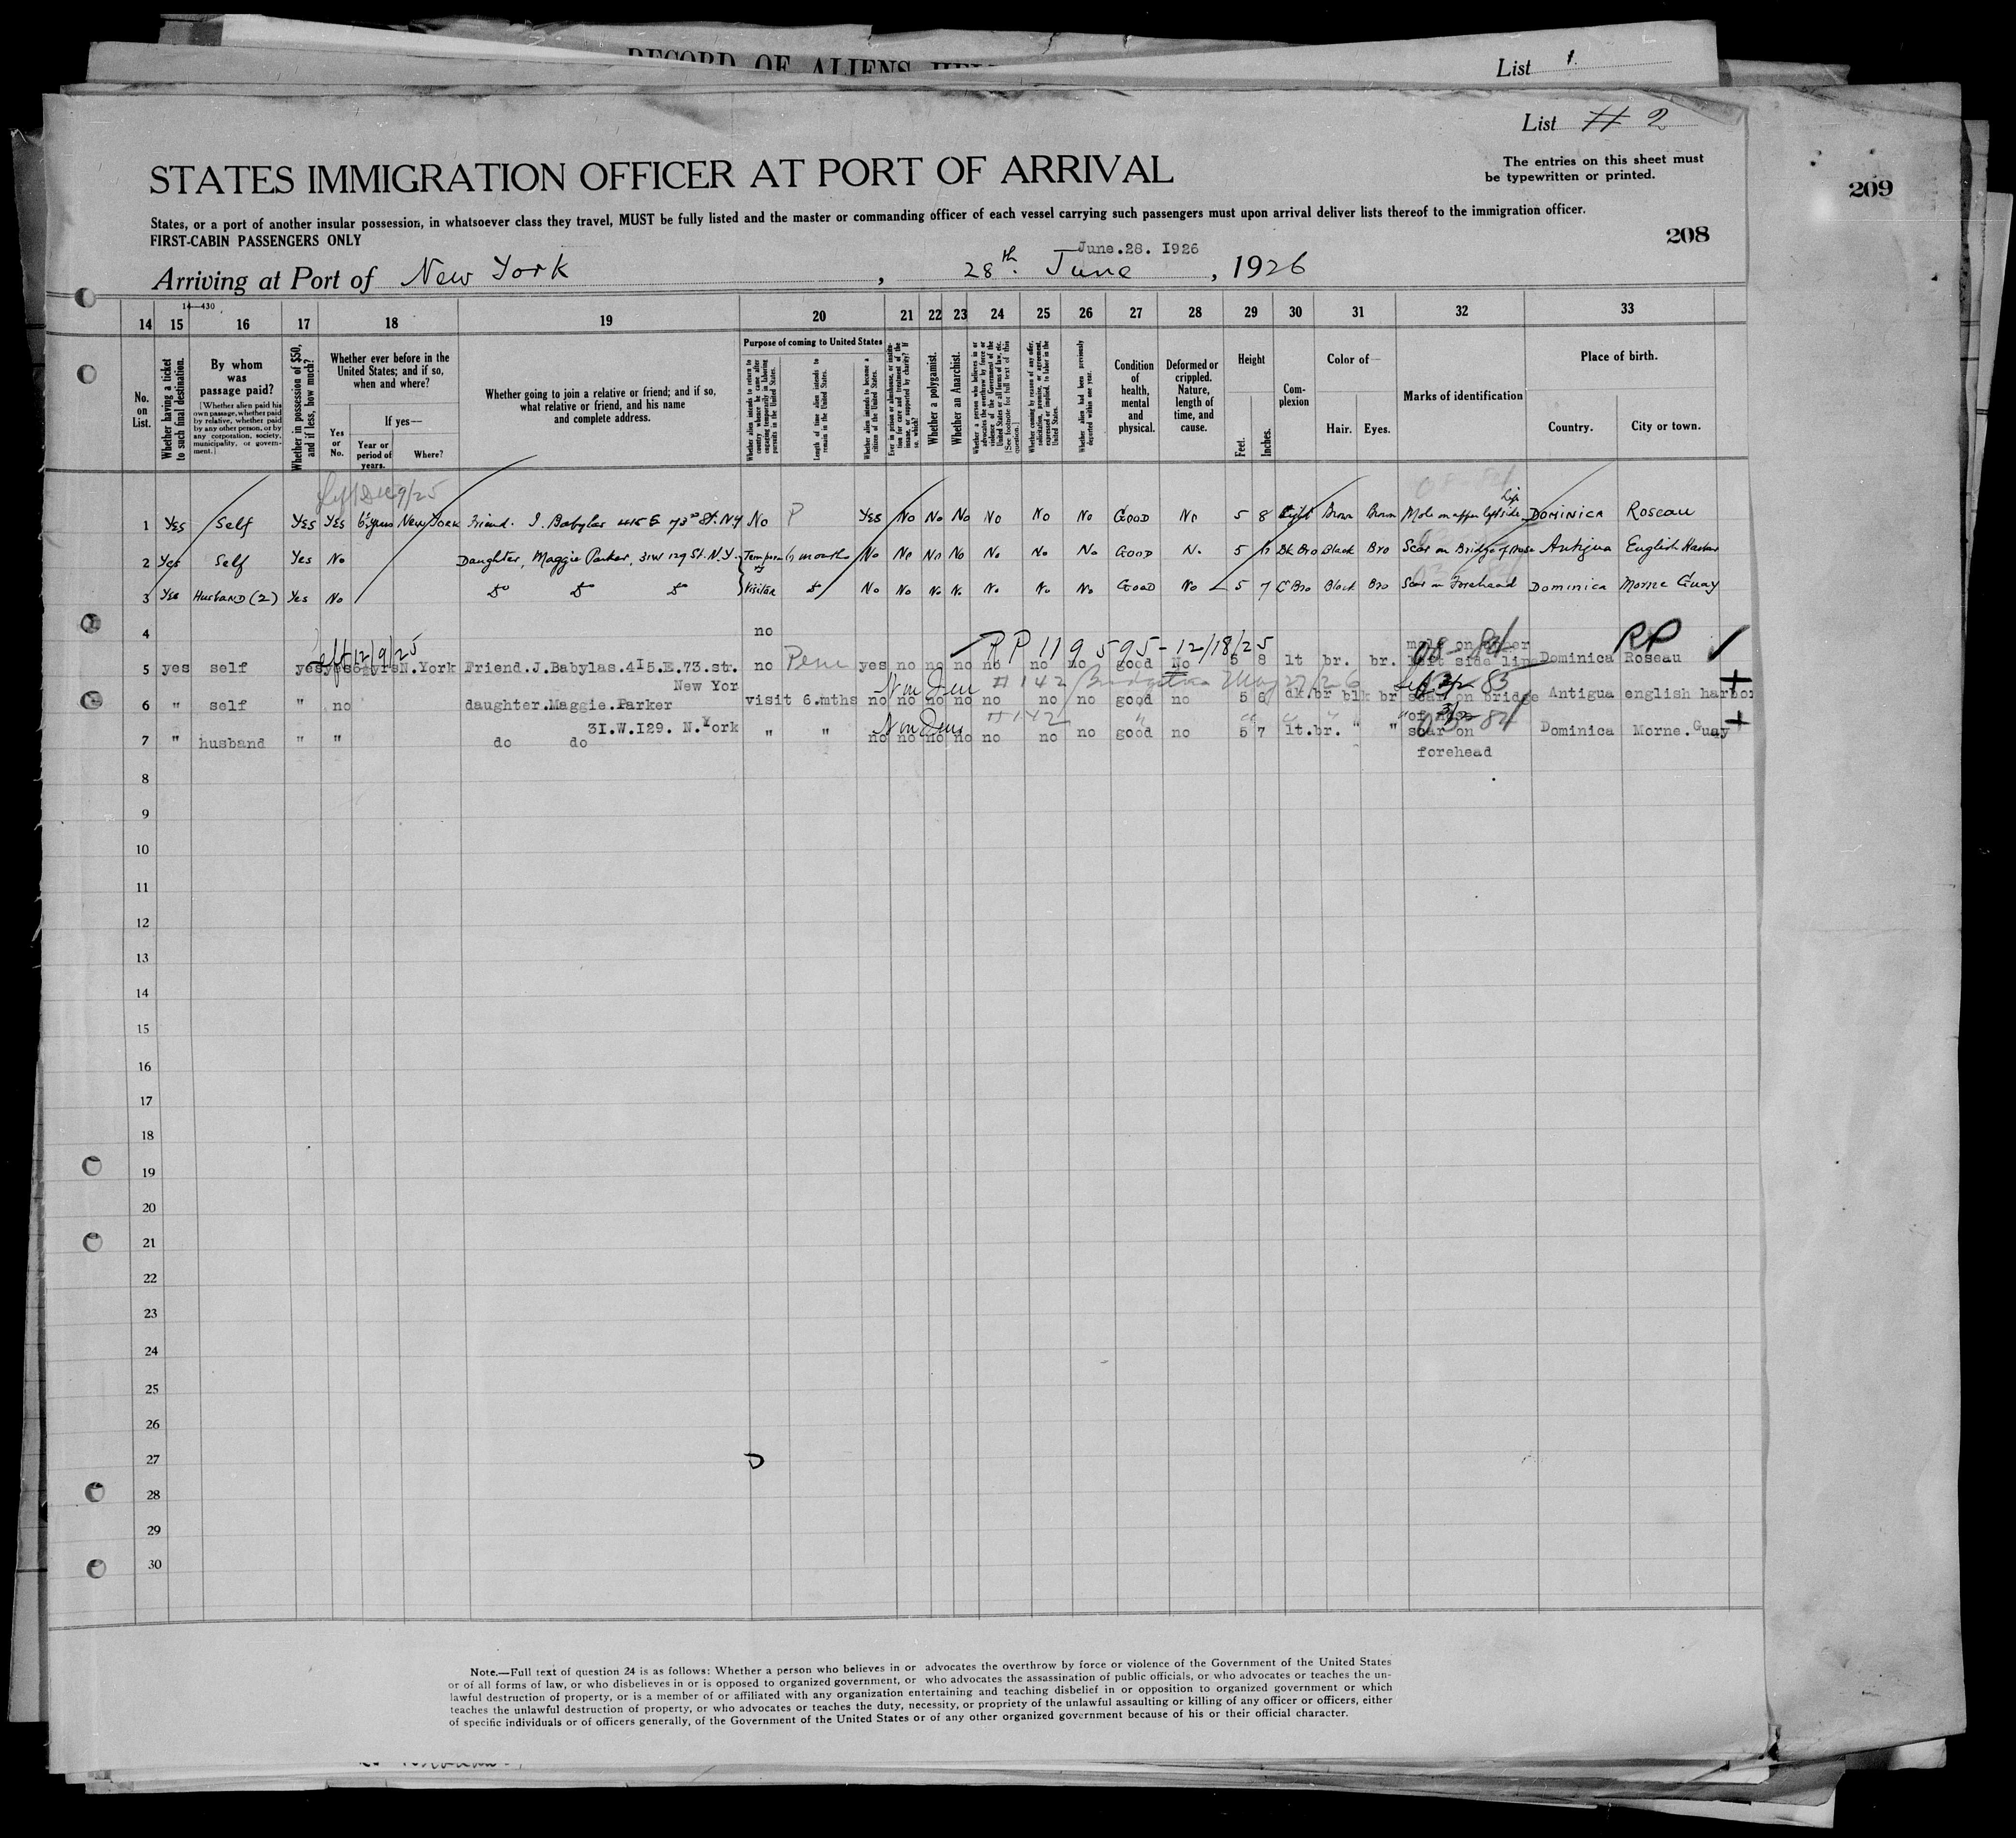 RECORD OF ALIENS
List 1
List # 2
STATES IMMIGRATION OFFICER AT PORT OF ARRIVAL
The entries on this sheet must
be typewritten or printed.
209
States, or a port of another insular possession, in whatsoever class they travel, MUST be fully listed and the master or commanding officer of each vessel carrying such passengers must upon arrival deliver lists thereof to the immigration officer.
FIRST-CABIN PASSENGERS ONLY
208
June.28. I926
Arriving at Port of New York, 28th. June, 1926
14—430
14 15 16 17 18 19 20 21 22 23 24 25 26 27 28 29 30 31 32 33
No. on List.
Whether having a ticket to such final destination.
By whom was passage paid?
[Whether alien paid his own passage, whether paid by relative, whether paid by any other person, or by any corporation, society, municipality, or government.]
Whether in possession of $50, and if less, how much?
Whether ever before in the United States; and if so, when and where?
Yes or No.
If yes—
Year or period of years.
Where?
Whether going to join a relative or friend; and if so, what relative or friend, and his name and complete address.
Purpose of coming to United States
Whether alien intends to return to country whence he came after engaging temporarily in laboring pursuits in the United States.
Length of time alien intends to remain in the United States.
Whether alien intends to become a citizen of the United States.
Ever in prison or almshouse, or institution for care and treatment of the insane, or supported by charity? If so, which?
Whether a polygamist.
Whether an Anarchist.
Whether a person who believes in or advocates the overthrow by force or violence of the Government of the United States or all forms of law, etc. [See footnote for full text of this question.]
Whether coming by reason of any offer, solicitation, promise, or agreement, expressed or implied, to labor in the United States.
Whether alien had been previously deported within one year.
Condition of health, mental and physical.
Deformed or crippled. Nature, length of time, and cause.
Height
Feet.
Inches.
Complexion
Color of—
Hair.
Eyes.
Marks of identification
Place of birth.
Country.
City or town.
Left Dec 9/25
1 Yes Self Yes Yes 6½yrs New York Friend. J. Babylas 415 E 73rd St. NY No P Yes No No No No No No Good No 5 8 Light Brown Brown Mole on upper left side Lip Dominica Roseau
2 Yes Self Yes No Daughter, Maggie Parker, 31W 129 St. N.Y. Temporary 6 months No No No No No No No Good No 5 6 Dk Bro Black Bro Scar on Bridge of Nose Antigua English Harbor
3 Yes Husband (2) Yes No Do Do Do Visitor Do No No No No No No No Good No 5 7 L Bro Black Bro Scar on Forehead Dominica Morne Guay
4 no
left 12/9/25
RP 119595 - 12/18/25
08-84 RP
5 yes self yes yes 6½yrs N.York Friend.J.Babylas.4I5.E.73.str. New Yor no Perm yes no no no no no no good No 5 8 lt br. br. mole on upper left side lip Dominica Roseau
Non Imm #142 Bridgetown May 27/26
6 " self " no daughter.Maggie.Parker 3I.W.I29. N.York visit 6.mths no no no no no no no good no 5 6 dk.br blk br scar on bridge of nose Antigua english harbor
Non Imm #142 " 03-84
7 " husband " " do do " " no no no no no no no good no 5 7 lt.br. " " scar on forehead Dominica Morne.Guay
8
9
10
11
12
13
14
15
16
17
18
19
20
21
22
23
24
25
26
27
28
29
30
Note.—Full text of question 24 is as follows: Whether a person who believes in or advocates the overthrow by force or violence of the Government of the United States
or of all forms of law, or who disbelieves in or is opposed to organized government, or who advocates the assassination of public officials, or who advocates or teaches the un-
lawful destruction of property, or is a member of or affiliated with any organization entertaining and teaching disbelief in or opposition to organized government or which
teaches the unlawful destruction of property, or who advocates or teaches the duty, necessity, or propriety of the unlawful assaulting or killing of any officer or officers, either
of specific individuals or of officers generally, of the Government of the United States or of any other organized government because of his or their official character.